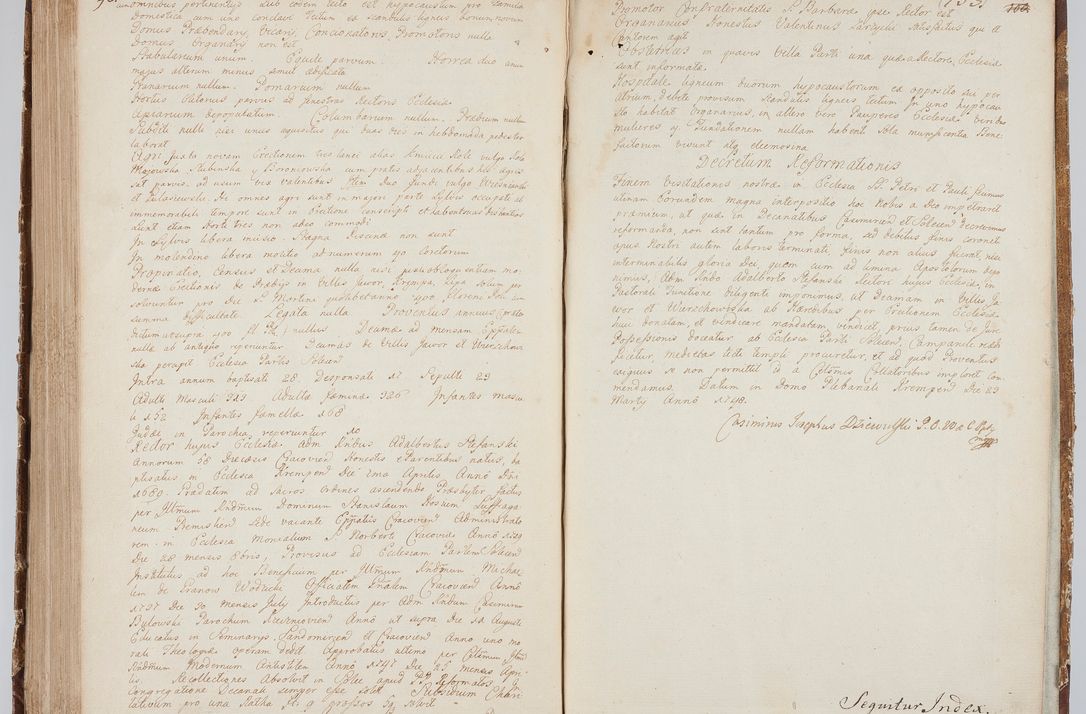 omnibus pertinentys sub eodem tecto est hypocaustum pro familia
Domestica cum uno conclavi Tectum ex scandulis ligneis bonum, novum
Domus Præbendarij, Vicarij, Concionatoris, Promotoris nulla
Domus Organarij non est
Stabularum unum. Equile parvum. Horrea duo unum
majus alterum minus simul ædificata
Granarium nullum. Pomarium nullum
Hortus Olitorius parvus ad fenestras Rectoris Ecclesiæ
Apiarium depopulatum. Columbarium nullum. Prædium nullum
Subditi nulli nisi unus aquisitus qui duos dies in hebdomada pedester
laborat
Agri Juxta novam Erectionem tres lanei alias Kmiecie Role vulgo Rola
Majowska Rubinska y Boroniowska cum pratis adjacentibus his agris
sat parvis ad usum tres valentibus Item duo fundi vulgo Wiesniacki
et Pulasiewski. Hi omnes agri sunt in majori parte Sylvis occupati et
immemorabili tempore sunt in Erectione conscripti et
sunt etiam Horti tres non adeo commodi
In Sylvis libera incisio. Stagna Piscina non sunt
In molendino libera molitio ad numerum 40 Corctorum
Propinatio, Census et Decima nulla nisi juxta obloquentiam mo
dernæ Erectionis de Prædijs in Villis Javor, Krempa, Lipa solum per
solvuntur pro die S. Martini quolibet anno 400 floreni Pol. cum
summa difficultate. Legata nulla Proventus annuus Ex præ
dictum ut supra 400 fl Pol. nullus Decimæ ad mensam Eppale
nulla ab antiquo reperiuntur Decimas de Villis Javor et Wierzchow
ska percepit Ecclesia Partis Solecen
Intra annum baptisati 28. Desponsati 17 Sepulti 23
Adulti Masculi 343 Adultæ fæminæ 326 Infantes mascu
li 152 Infantes famellæ 168
Judæi in Parochia reperiuntur 10
Rector hujus Ecclesiæ Adm Rndus Adalbertus Stefanski
Annorum 58 Diæcesis Cracovien Honestis e Parentibus natus, ba
ptisatus in Ecclesia Krempen Die 2ma Aprilis Anno Dni
1689. Prædatim ad sacros ordines ascendendo Præsbyter factus
per Illmum Rndmum Dominum Stanislaum Hosium Suffraga
neum Premislien Sede vacante Eppatus Cracovien Administrato
rem in Ecclesia Monialium S. Norberti Cracoviæ Anno 1719
Die 28 mensis 8bris, Provisus ad Ecclesiam Partem Solecen
Institutus ad hoc Beneficium per Illmum Rndmum Michae
lem de Granow Wodzicki Officialem Gnalem Cracovien Anno
1737 Die 30 mensis July Introductus per Adm Rndum Casimirum
Bylowski Parochum Anno ut supra Die 12 Augusti
Educatus in Seminarijs Sandomirien et Cracovien Anno uno mo
rali Theologiæ operam dedit Approbatus ultimo per Celsmum, Illmum
Rndmum Modernum Antistitem Anno 1747 Die 25 mensis Apri
lis. Recollectiones Absolvit in Solec apud PP Reformatos In
Congregatione Decanali semper esse solet Subsidium Chari
tativum pro una Ratha fl 9 grossos 59 solvit
Promotor
Promotor Confraternitatis S. Barbaræ ipse Rector est
Organarius Honestus Valentinus qui et
Cantorem agit
Obstetrices in quavis Villa Parti una quæ a Rectore Ecclesiæ
sunt informatæ.
Hospitale ligneum duorum hypocaustorum ex opposito sui per
atrium, de lecto provisum scandulis ligneis tectum In uno hypocau
sto habitat Organarius, in altero vero Pauperes Ecclesiæ Viribus
mulieres 4 Fundationem nullam habent sola munificentia Bene
factorum vivunt atq eleemosina
Decretum Reformationis
Finem Visitationis nostræ in Ecclesia SS. Petri et Pauli ponimus
utinam Eorundem magna interpositio hoc Nobis a Deo impetraret
præmium, ut quæ in Decanatibus Casimirien et Solecen decrevimus
reformanda, non sint tantum pro forma, sed debitus finis coronet
opus Nostri autem laboris terminati, finis non alius fuerat, nisi
interminabilis gloria Dei, quem cum ad limina Apostolorum depo
nimus, Adm Rndo Adalberto Stefanski Rectori hujus Ecclesiæ, in
Pastorali functione diligenti imponimus, ut Decimam in Villis Ja
wor et Wierzchowiska ab Hæredibus per Erectionem Ecclesiæ
huic donatam, et vindicare mandatam vindicet, prius tamen de Jure
Possessionis doceatur ab Ecclesia Parti Solecen, Campanile redi
ficetur, medietas tecti templi procuretur, et ad quod Proventus
exiguus se non permittit id a Celsmis Collatoribus imploret com
mendamus. Datum in Domo Plebanali Krempen Die 23
Martij Anno 1748.
Casimirus Josephus Dziewulski
mpp
Sequitur Index.